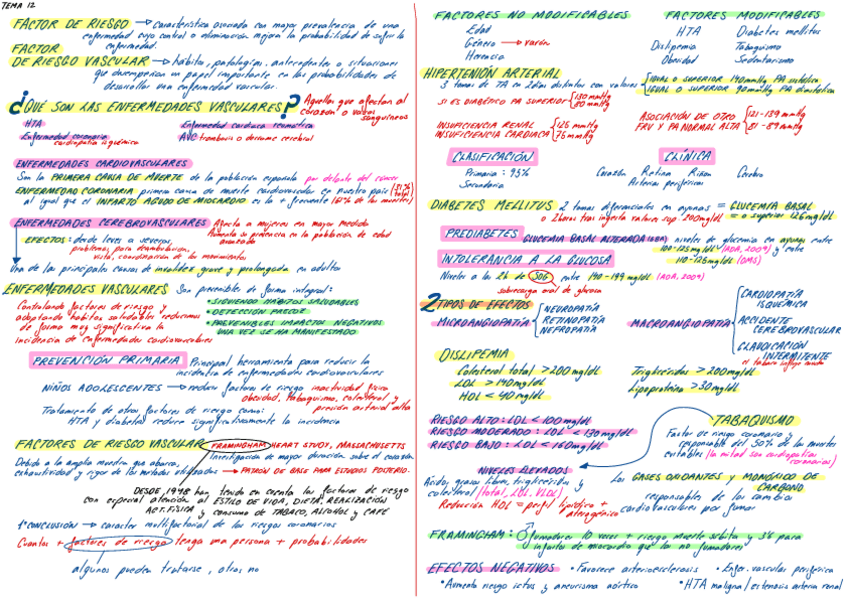 TEMA 12
FACTOR DE RIESGO → característica asociada con mayor prevalencia de una
enfermedad cuyo control o eliminación mejora la probabilidad de sufrir la
enfermedad.
FACTOR
DE RIESGO VASCULAR → hábito, patologías, antecedentes o situaciones
que desempeñan un papel importante en las probabilidades de
desarrollar una enfermedad vascular.
¿QUÉ SON LAS ENFERMEDADES VASCULARES? Aquellas que afectan al
corazón o vasos
sanguíneos
HTA
Enfermedad cardiaca reumática
Enfermedad coronaria
cardiopatía isquémica
AVC trombosis o derrame cerebral
ENFERMEDADES CARDIOVASCULARES
Son la PRIMERA CAUSA DE MUERTE de la población española por delante del cáncer
ENFERMEDAD CORONARIA primera causa de muerte cardiovascular en nuestro país
al igual que el INFARTO AGUDO DE MIOCARDIO es la + frecuente
ENFERMEDADES CEREBROVASCULARES Afecta a mujeres en mayor medida
Aumenta su presencia en la población de edad
avanzada
EFECTOS: desde leve a severos
problemas para deambulación,
vista, coordinación de los movimientos
Una de las principales causas de invalidez grave y prolongada en adultos
ENFERMEDADES VASCULARES Son prevenibles de forma integral:
Controlando factores de riesgo y
adoptando hábitos saludables reducimos
de forma muy significativa la
incidencia de enfermedades cardiovasculares
• SIGUIENDO HÁBITOS SALUDABLES
• DETECCIÓN PRECOZ
• PREVENIBLES IMPACTOS NEGATIVOS
UNA VEZ SE HA MANIFESTADO
PREVENCIÓN PRIMARIA Principal herramienta para reducir la
incidencia de enfermedades cardiovasculares
NIÑOS ADOLESCENTES → reducir factores de riesgo inactividad física
obesidad, tabaquismo, colesterol y
presión arterial alta
Tratamiento de otros factores de riesgo como:
HTA y diabetes reduce significativamente la incidencia
FACTORES DE RIESGO VASCULAR FRAMINGHAM HEART STUDY, MASSACHUSETTS
Investigación de mayor duración sobre el corazón
Debido a la amplia muestra que abarca,
exhaustividad y rigor de los métodos utilizados → PATRÓN DE BASE PARA ESTUDIOS POSTERIO.
DESDE 1948 han tenido en cuenta los factores de riesgo
con especial atención al ESTILO DE VIDA, DIETA, REALIZACIÓN
ACT. FÍSICA y CONSUMO DE TABACO, ALCOHOL y CAFÉ
1ª CONCLUSIÓN → carácter multifactorial de los riesgos coronarios
Cuantos + factores de riesgo tenga una persona + probabilidades
algunos pueden tratarse, otros no
FACTORES NO MODIFICABLES
Edad
Género → varón
Herencia
FACTORES MODIFICABLES
HTA Diabetes mellitus
Dislipemia Tabaquismo
Obesidad Sedentarismo
HIPERTENIÓN ARTERIAL
3 tomas de TA en 2 días distintos con valores IGUAL O SUPERIOR 140mmHg PA sistólica
IGUAL O SUPERIOR 90mmHg PA diastólica
SI ES DIABÉTICO PA SUPERIOR 130mmHg
80mmHg
INSUFICIENCIA RENAL 125 mmHg
INSUFICIENCIA CARDIACA 75 mmHg
ASOCIACIÓN DE OTRO 121-139 mmHg
FRV Y PA NORMAL ALTA 81-89 mmHg
CLASIFICACIÓN
Primaria: 95%
Secundaria
CLÍNICA
Corazón Retina Riñón Cerebro
Arterias periféricas
DIABETES MELLITUS 2 tomas diferenciales en ayunas = GLUCEMIA BASAL
o 2 horas tras ingesta valores sup. 200mg/dL = o superior 126mg/dL
PREDIABETES GLUCEMIA BASAL ALTERADA niveles de glucemia en ayunas entre
100-125mg/dL (ADA, 2009) y entre
110-125mg/dL (OMS)
INTOLERANCIA A LA GLUCOSA
Niveles a las 2h de SOG entre 140-199 mg/dL (ADA, 2009)
sobrecarga oral de glucosa
2 TIPOS DE EFECTOS
MICROANGIOPATÍA NEUROPATÍA
RETINOPATÍA
NEFROPATÍA
MACROANGIOPATÍA CARDIOPATÍA
ISQUÉMICA
ACCIDENTE
CEREBROVASCULAR
CLAUDICACIÓN
INTERMITENTE
el tabaco influye mucho
DISLIPEMIA
Colesterol total > 200 mg/dL
LDL > 140mg/dL
HDL < 40 mg/dL
Triglicéridos > 200mg/dL
Lipoproteína > 30 mg/dL
RIESGO ALTO: LDL < 100 mg/dL
RIESGO MODERADO: LDL < 130 mg/dL
RIESGO BAJO: LDL < 160mg/dL
TABAQUISMO
Factor de riesgo coronario y
responsable del 50% de las muertes
evitables (la mitad son cardiopatías
coronarias)
NIVELES ELEVADOS
Ácidos grasos libre, triglicéridos y
colesterol (total, LDL, VLDL)
Reducción HDL = perfil lipídico +
aterogénico
Los GASES OXIDANTES Y MONÓXIDO DE
CARBONO
responsables de los cambios
cardiovasculares por fumar
FRAMINGHAM: fumadores 10 veces + riesgo muerte súbita y 3% para
infartos de miocardio que los no fumadores
EFECTOS NEGATIVOS • Favorece arterioesclerosis • Enfer. vascular periférica
• Aumento riesgo ictus y aneurisma aórtico • HTA maligna / estenosis arteria renal